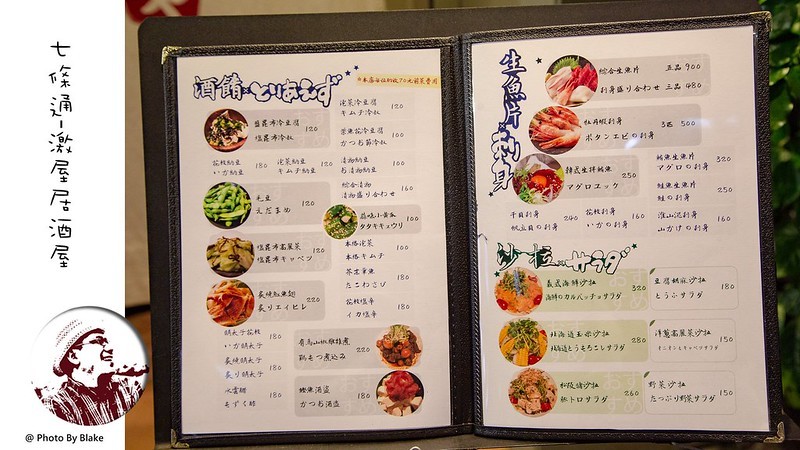 七條通-激屋居酒屋
@ Photo By Blake
酒餚×とりあえず
塩昆布冷豆腐 120
塩昆布冷奴
泡菜冷豆腐 120
キムチ冷奴
柴魚花冷豆腐 100
かつお節冷奴
花枝納豆 180
いか納豆
泡菜納豆 120
キムチ納豆
漬物納豆 100
お漬物納豆
綜合漬物 160
漬物盛り合わせ
毛豆 120
えだまめ
蒜味小黃瓜 100
タタキキュウリ
塩昆布高麗菜 120
塩昆布キャベツ
本格泡菜 100
本格キムチ
芥末章魚 180
たこわさび
炙燒魟魚翅 220
炙りエイヒレ
花枝塩辛 180
イカ塩辛
明太子花枝 180
いか明太子
炙燒明太子 180
炙り明太子
水雲醋 80
もずく酢
有馬山椒雞雜煮 220
鶏もつ煮込み
鰹魚酒盜 180
かつお酒盗
生魚片 刺身
綜合生魚片 五品 900
刺身盛り合わせ 三品 480
牡丹蝦刺身 3匹 500
ボタンエビの刺身
韓式生拌鮪魚 250
マグロユッケ
鮪魚生魚片 320
マグロの刺身
鮭魚生魚片 250
鮭の刺身
干貝刺身 240
帆立貝の刺身
花枝刺身 160
いかの刺身
淮山泥刺身 160
山かけの刺身
沙拉×サラダ
義式海鮮沙拉 320
海鮮のカルパッチョサラダ
豆腐胡麻沙拉 180
とうふサラダ
北海道玉米沙拉 280
北海道とうもろこしサラダ
洋蔥高麗菜沙拉 150
オニオンとキャベツサラダ
松阪豬沙拉 260
豚トロサラダ
野菜沙拉 150
たっぷり野菜サラダ